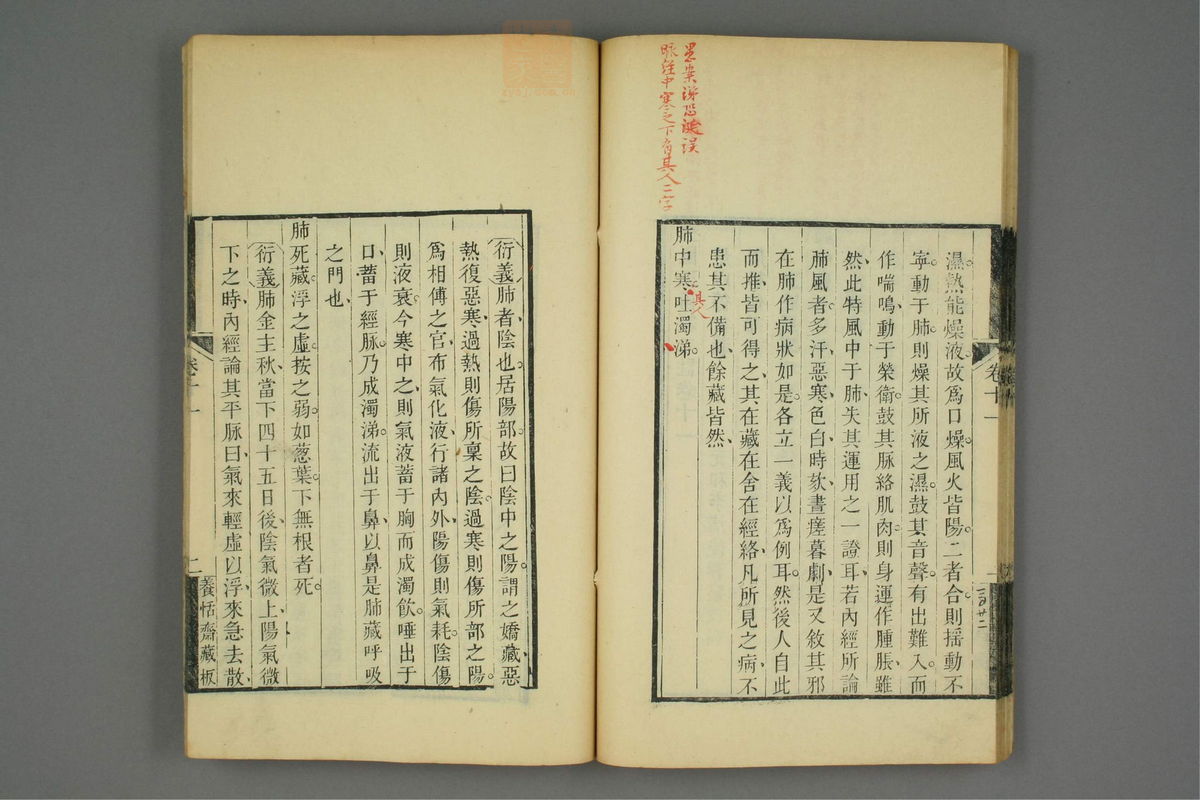 愚案涕恐涎誤
脉經中寒之下有其人二字
濕熱能燥液故爲口燥風火皆陽二者合則揺動不
寕動于肺則燥其所液之濕鼓其音聲有出難入而
作喘鳴動于榮衛鼓其脉絡肌肉則身運作腫脹雖
然此特風中于肺失其運用之一證耳若內經所論
肺風者多汗惡寒色白時欬晝瘥暮劇是又敘其邪
在肺作病狀如是各立一義以爲例耳然後人自此
而推皆可得之其在藏在舍在經絡凡所見之病不
患其不備也餘藏皆然
肺中寒吐濁涕
其人
卷十一
衍義肺者陰也居陽部故曰陰中之陽謂之嬌藏惡
熱復惡寒過熱則傷所稟之陰過寒則傷所部之陽
爲相傅之官布氣化液行諸內外陽傷則氣耗陰傷
則液衰今寒中之則氣液蓄于胸而成濁飲唾出于
口蓄于經脉乃成濁涕流出于鼻以鼻是肺藏呼吸
之門也
肺死藏浮之虛按之弱如葱葉下無根者死
衍義肺金主秋當下四十五日後陰氣微上陽氣微
下之時內經論其平脉曰氣來輕虛以浮來急去散
卷十一
二
養恬齋藏板